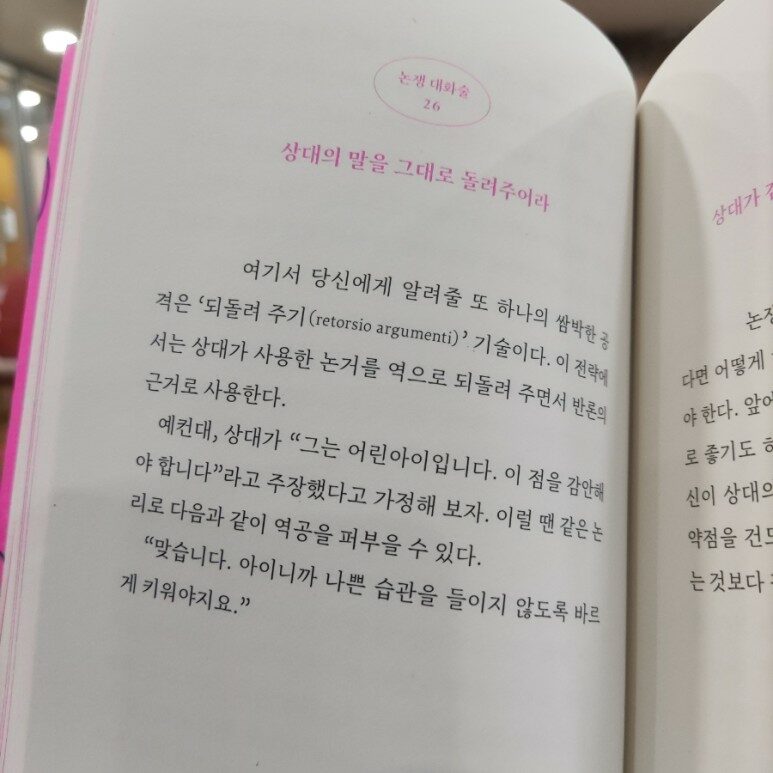 논쟁 대화술
26
상대의 말을 그대로 돌려주어라
여기서 당신에게 알려줄 또 하나의 쌈박한 공
격은 ‘되돌려 주기(retorsio argumenti)’ 기술이다. 이 전략에
서는 상대가 사용한 논거를 역으로 되돌려 주면서 반론의
근거로 사용한다.
예컨대, 상대가 “그는 어린아이입니다. 이 점을 감안해
야 합니다”라고 주장했다고 가정해 보자. 이럴 땐 같은 논
리로 다음과 같이 역공을 퍼부을 수 있다.
“맞습니다. 아이니까 나쁜 습관을 들이지 않도록 바르
게 키워야지요.”
상대가
다면 어떻게
야 한다. 앞에
로 좋기도
신이 상대의
약점을 건드
는 것보다